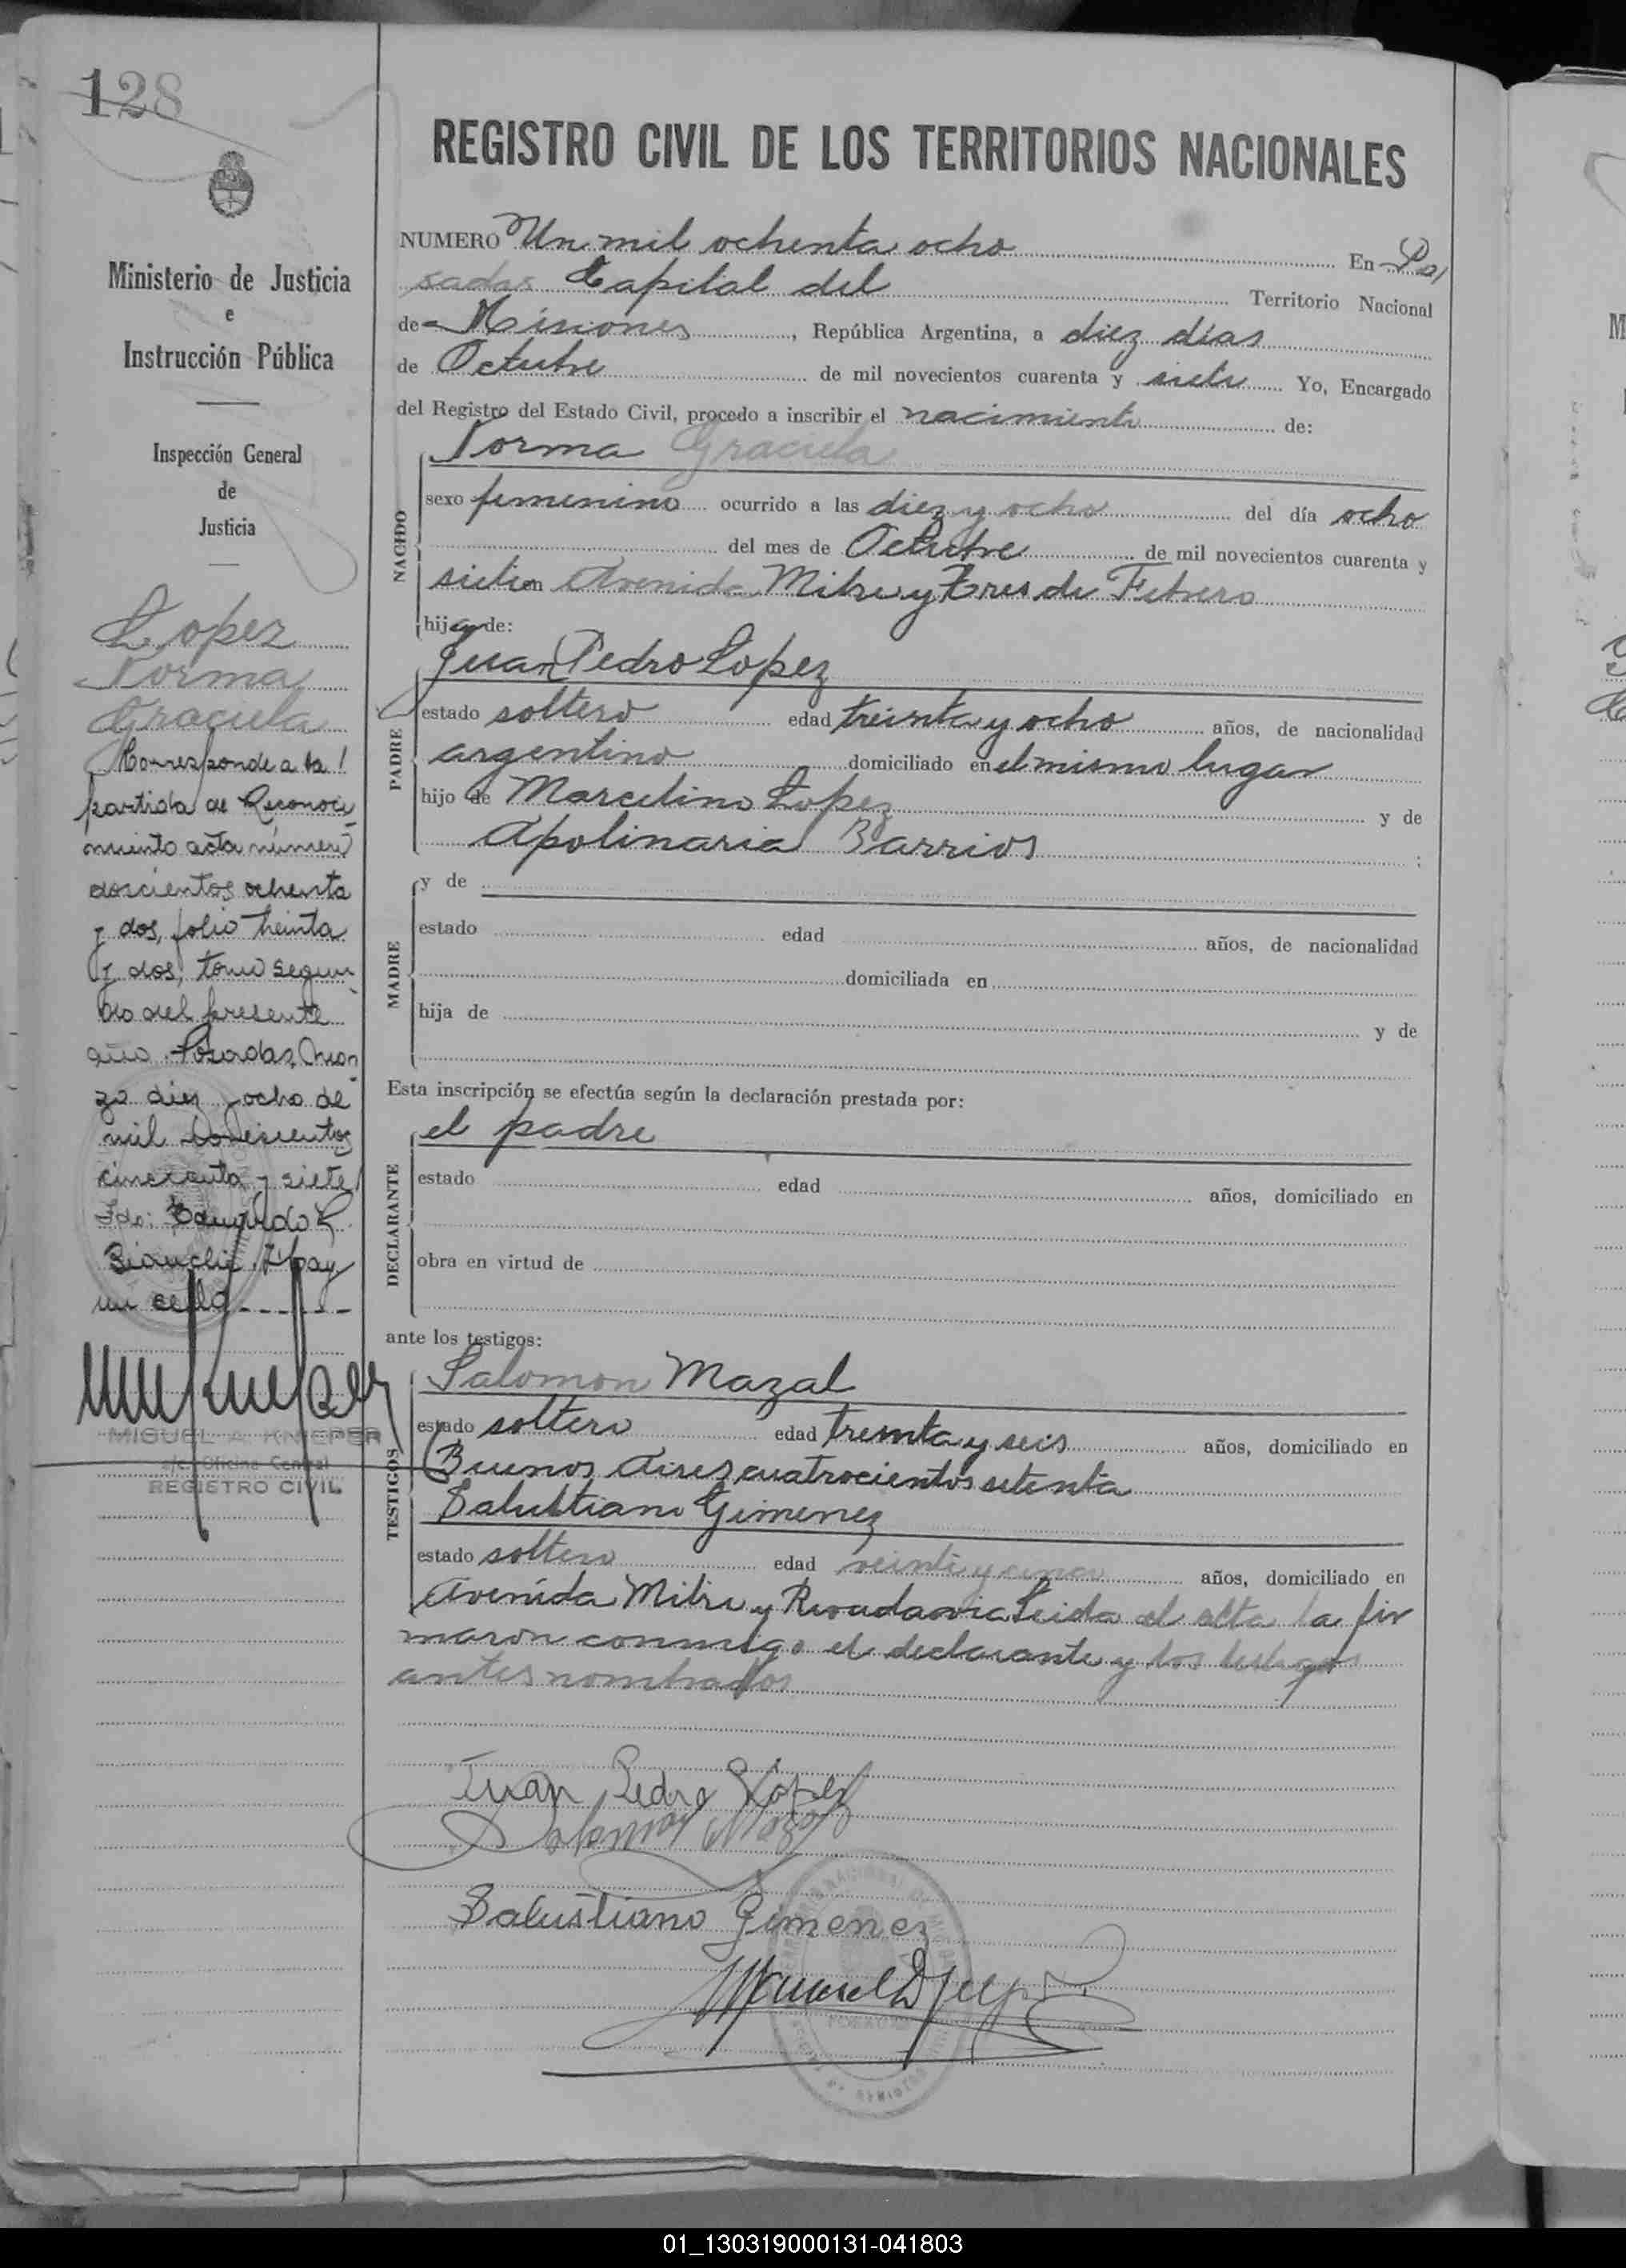 128
Ministerio de Justicia
e
Instrucción Pública
Inspección General
de
Justicia
Lopez
Norma
Graciela
Corresponde a la
partida de Reconoci
miento acta número
doscientos ochenta
y dos, folio treinta
y dos, tomo segun
do del presente
año. Posadas, Mar
zo diez y ocho de
mil novecientos
cincuenta y siete
Fdo: Eduardo L.
Bianchi. Hay
un sello
MIGUEL A. KNIEPER
a/c. Oficina Central
REGISTRO CIVIL
REGISTRO CIVIL DE LOS TERRITORIOS NACIONALES
NUMERO Un mil ochenta ocho En Po
sadas Capital del Territorio Nacional
de Misiones, República Argentina, a diez días
de Octubre de mil novecientos cuarenta y siete Yo, Encargado
del Registro del Estado Civil, procedo a inscribir el nacimiento de:
NACIDO
Norma Graciela
sexo femenino ocurrido a las diez y ocho del día ocho
del mes de Octubre de mil novecientos cuarenta y
siete en Avenida Mitre y Tres de Febrero
hija de:
PADRE
Juan Pedro Lopez
estado soltero edad treinta y ocho años, de nacionalidad
argentino domiciliado en el mismo lugar
hijo de Marcelino Lopez y de
Apolinaria Barrios ;
MADRE
y de
estado edad años, de nacionalidad
domiciliada en
hija de y de
Esta inscripción se efectúa según la declaración prestada por:
DECLARANTE
el padre
estado edad años, domiciliado en
obra en virtud de
ante los testigos:
TESTIGOS
Salomon Mazal
estado soltero edad treinta y seis años, domiciliado en
Buenos Aires cuatrocientos setenta
Salustiano Gimenez
estado soltero edad veinte y cinco años, domiciliado en
Avenida Mitre y Rivadavia Leida el acta la fir
maron conmigo el declarante y los testigos
antes nombrados
Juan Pedro López
Salomon Mazal
Salustiano Gimenez
01_130319000131-041803